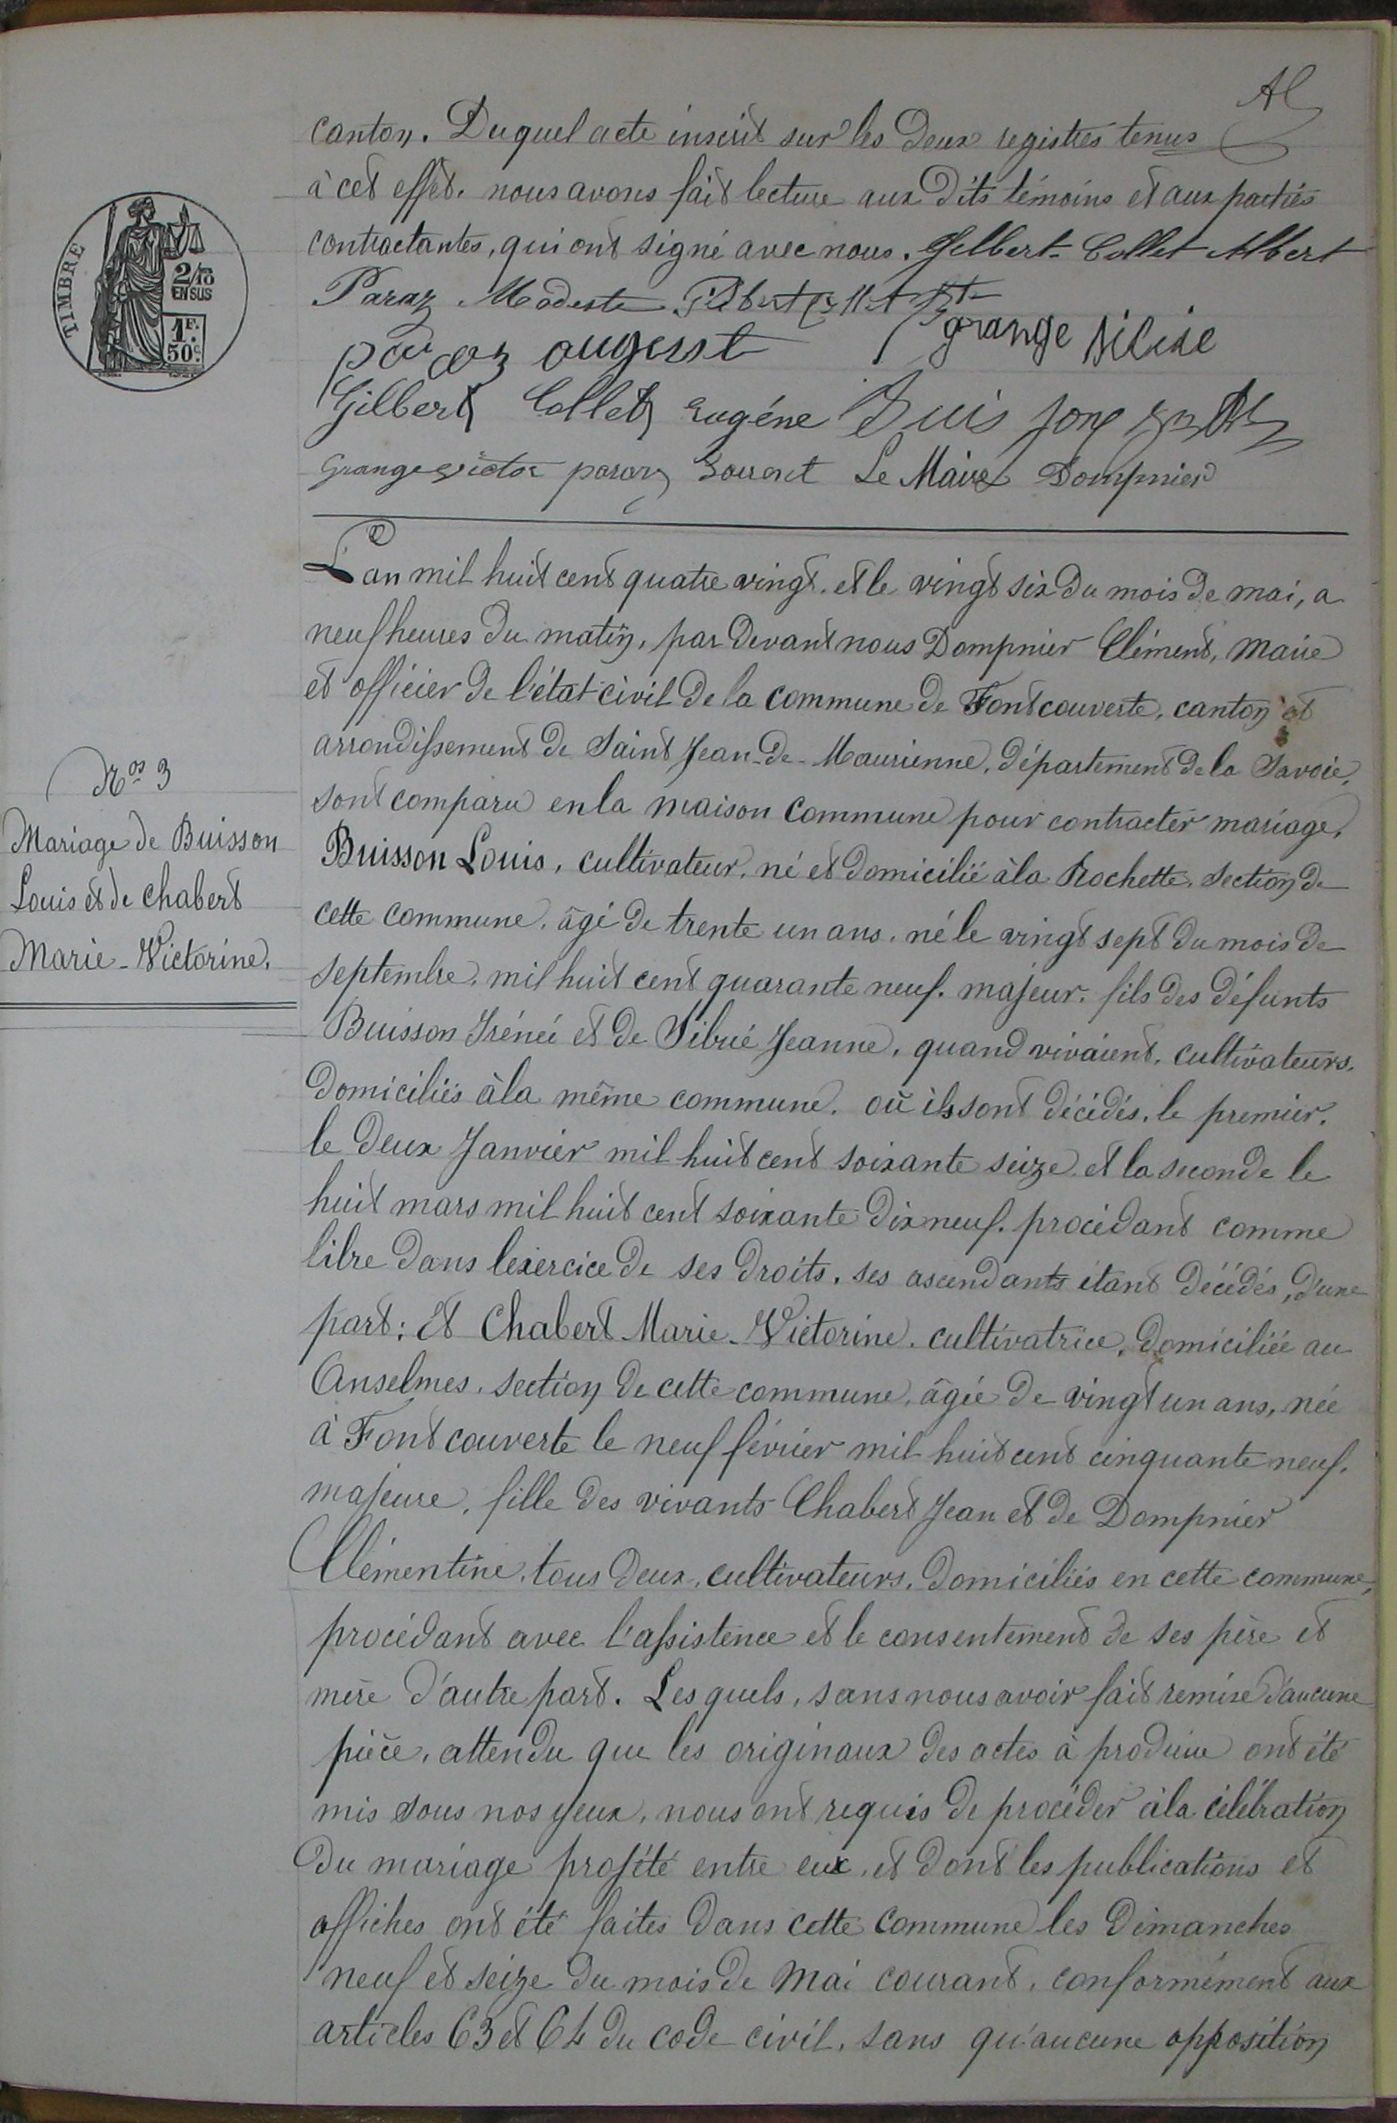 canton. Duquel acte inscrit sur les deux registres tenus
à cet effet. nous avons fait lecture aux dits témoins et aux parties
contractantes, qui ont signé avec nous. Gilbert-Collet Albert
Paraz Modeste Gilbert Collet
grange
paraz augusst
Gilbert Collet Eugéne Buis
Grange victor paraz Le Maire Dompnier
TIMBRE
2/10
EN SUS
1F.
50c.
L'an mil huit cent quatre vingt. et le vingt six du mois de mai, a
neuf heures du matin, par devant nous Dompnier Clément, Maire
et officier de l'état civil de la commune de Fontcouverte, canton et
arrondissement de Saint Jean-de-Maurienne, département de la Savoie,
sont comparu en la maison commune pour contracter mariage,
Buisson Louis, cultivateur, né et domicilié à la Rochette, section de
cette commune, âgé de trente un ans, né le vingt sept du mois de
septembre, mil huit cent quarante neuf. majeur. fils des défunts
Buisson Irénéé et de Sibué Jeanne, quand vivaient, cultivateurs,
domiciliés à la même commune. où ils sont décédés, le premier,
le deux Janvier mil huit cent soixante seize et la seconde le
huit mars mil huit cent soixante dix neuf. procédant comme
libre dans l'exercice de ses droits, ses ascendants étant décédés, d'une
part; Et Chabert Marie-Victorine, cultivatrice, domiciliée au
Anselmes, section de cette commune, âgée de vingt un ans, née
à Fontcouverte le neuf février mil huit cent cinquante neuf.
majeure, fille des vivants Chabert Jean et de Dompnier
Clémentine, tous deux, cultivateurs, domiciliés en cette commune,
procédant avec l'assistence et le consentement de ses père et
mère d'autre part. Lesquels, sans nous avoir fait remise d'aucune
pièce, attendu que les originaux des actes à produire ont été
mis sous nos yeux, nous ont requis de procéder à la célébration
du mariage projété entre eux, et dont les publications et
affiches ont été faites dans cette commune les Dimanches
neuf et seize du mois de Mai courant, conformément aux
articles 63 et 64 du code civil, sans qu'aucune opposition
Nos 3
Mariage de Buisson
Louis et de Chabert
Marie-Victorine.